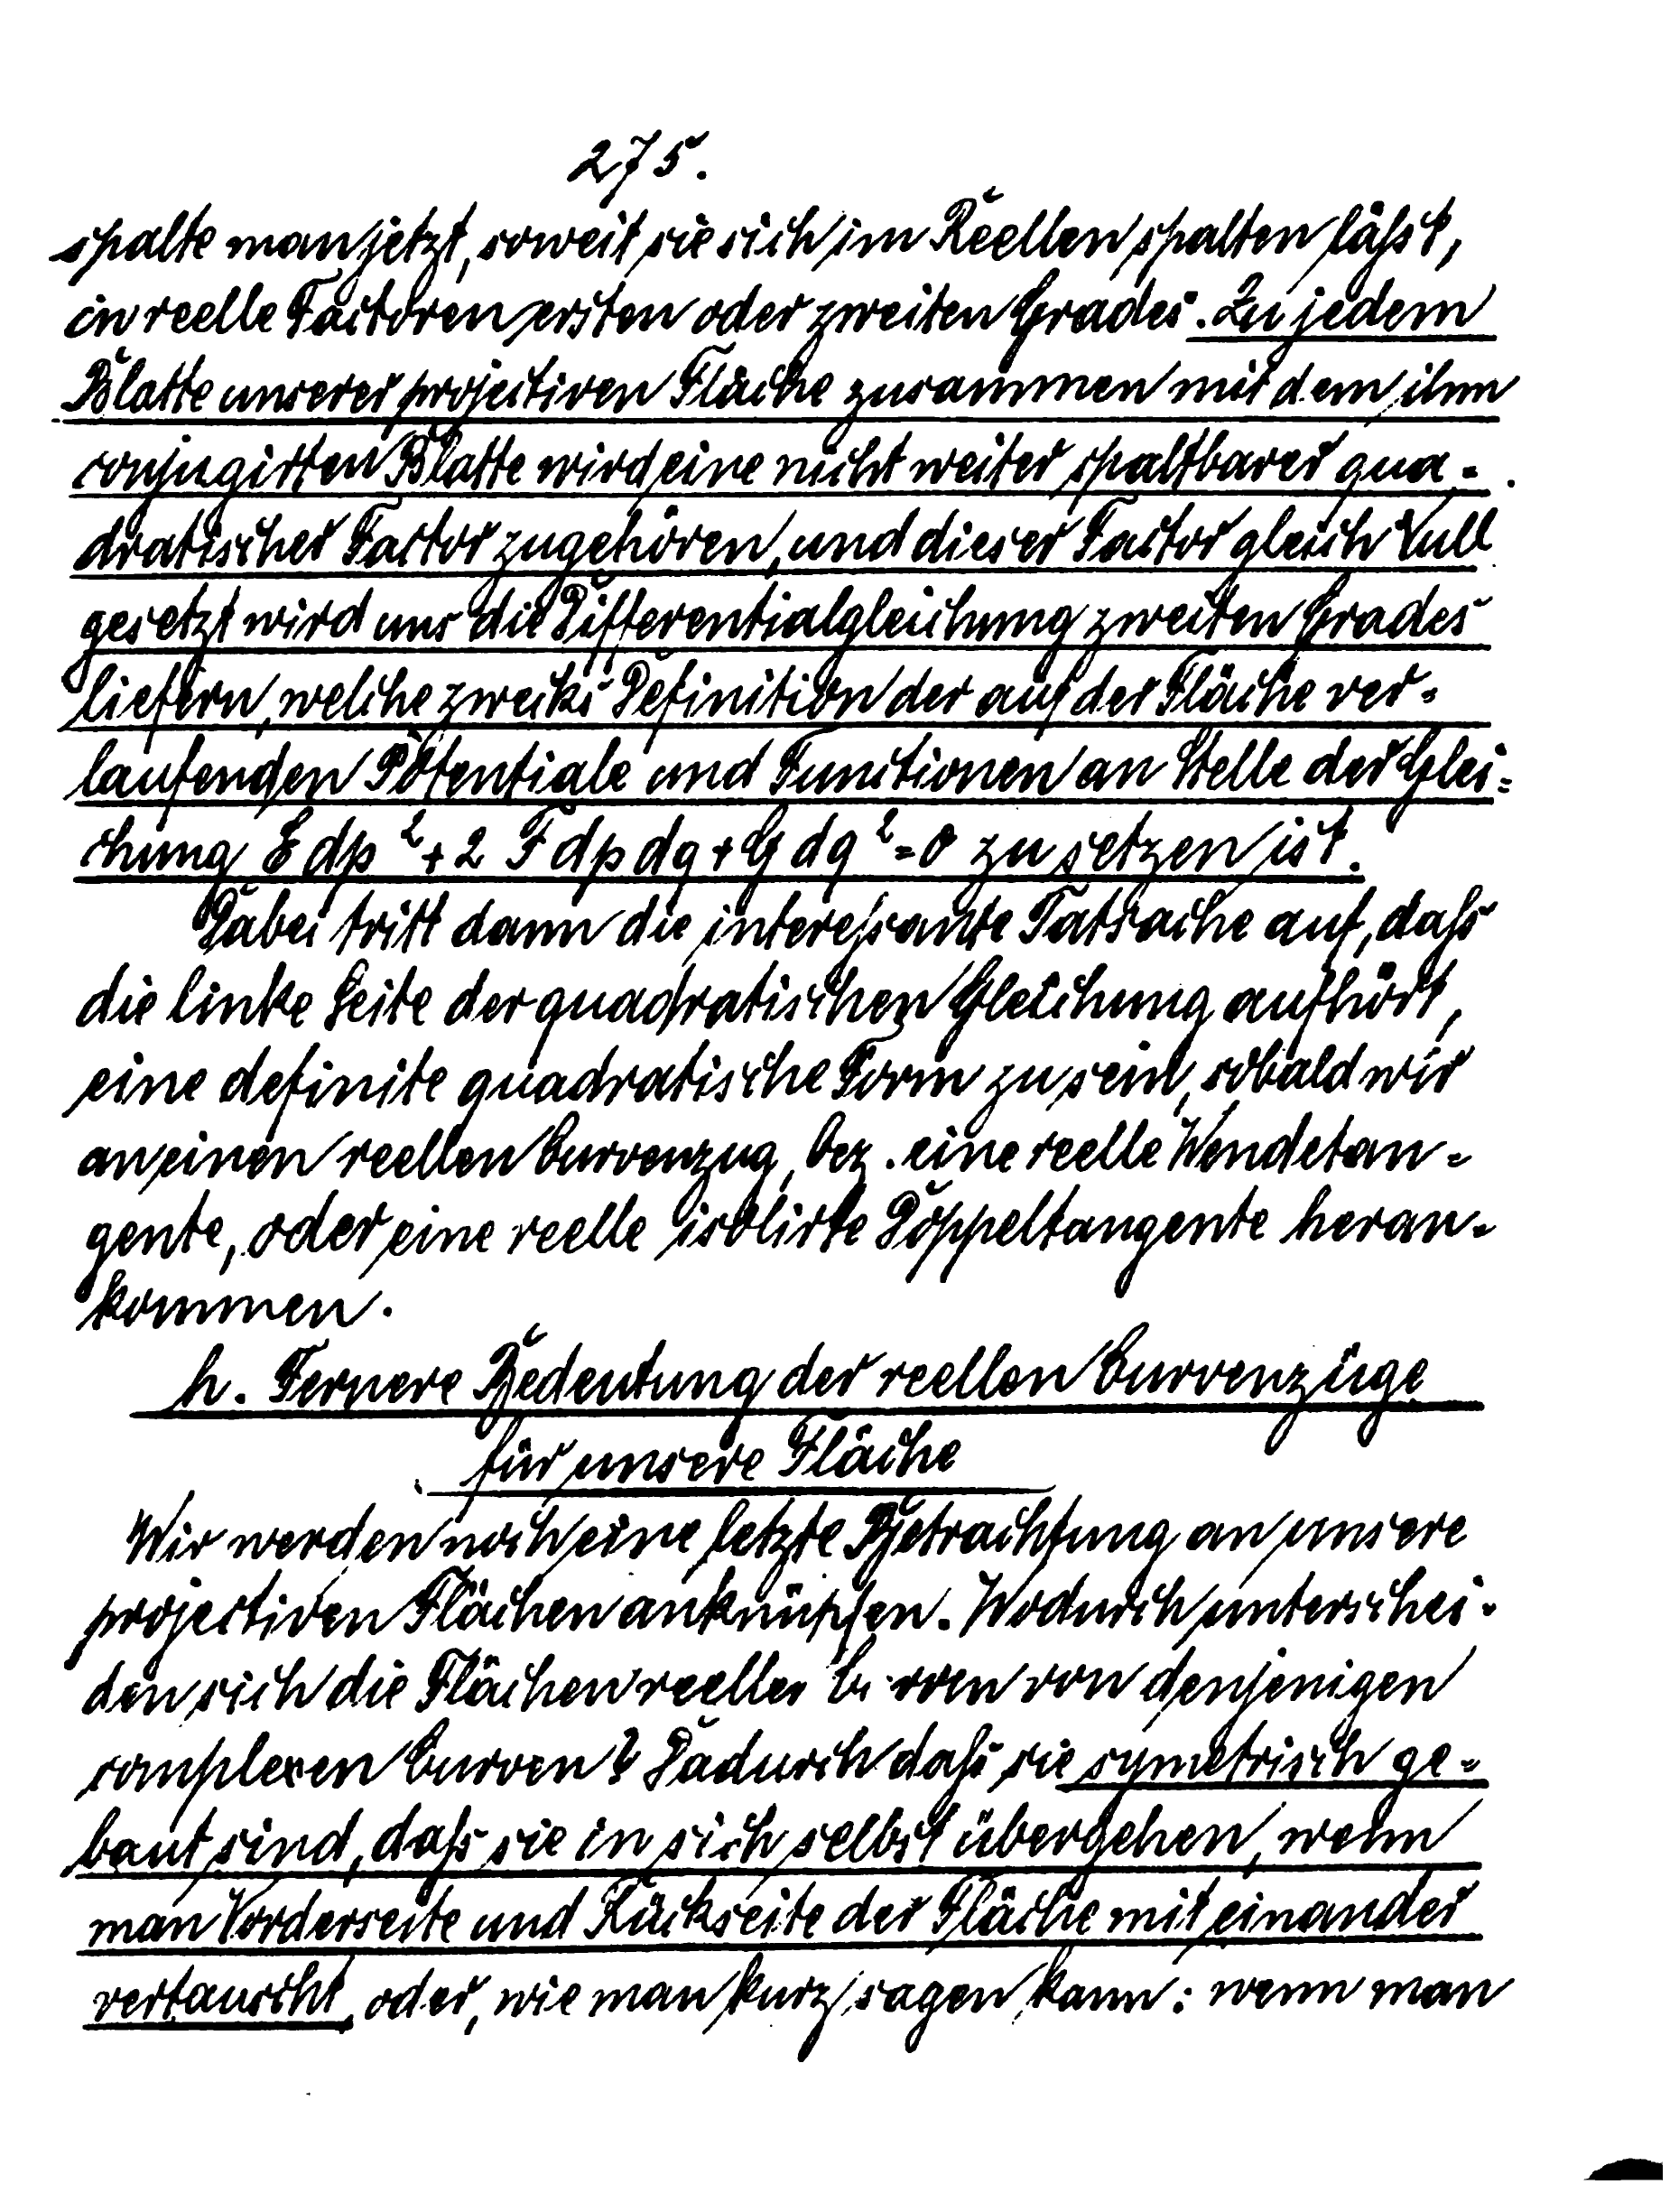 275.
spalte man jetzt, soweit sie sich im Reellen spalten läßt,
in reelle Factoren ersten oder zweiten Grades. Zu jedem
Blatte unserer projectiven Fläche zusammen mit dem ihm
conjugirten Blatte wird eine nicht weiter spaltbarer qua-
dratischer Factor zugehören, und dieser Factor gleich Null
gesetzt wird uns die Differentialgleichung zweiten Grades
liefern, welche zwecks Definition der auf der Fläche ver-
laufenden Potentiale und Functionen an Stelle der Glei-
chung E dp² + 2 F dp dq + G dq² = 0 zu setzen ist.
Dabei tritt dann die interessante Tatsache auf, daß
die linke Seite der quadratischen Gleichung aufhört,
eine definite quadratische Form zu sein, sobald wir
an einen reellen Curvenzug, bez. eine reelle Wendetan-
gente, oder eine reelle isolirte Doppeltangente heran-
kommen.
h. Fernere Bedeutung der reellen Curvenzüge
für unsere Fläche
Wir werden noch eine letzte Betrachtung an unsere
projectiven Flächen anknüpfen. Wodurch unterschei-
den sich die Flächen reeller Curven von denjenigen
complexen Curven? Dadurch daß sie symetrisch ge-
baut sind, daß sie in sich selbst übergehen, wenn
man Vorderseite und Rückseite der Fläche mit einander
vertauscht, oder, wie man kurz sagen kann: wenn man